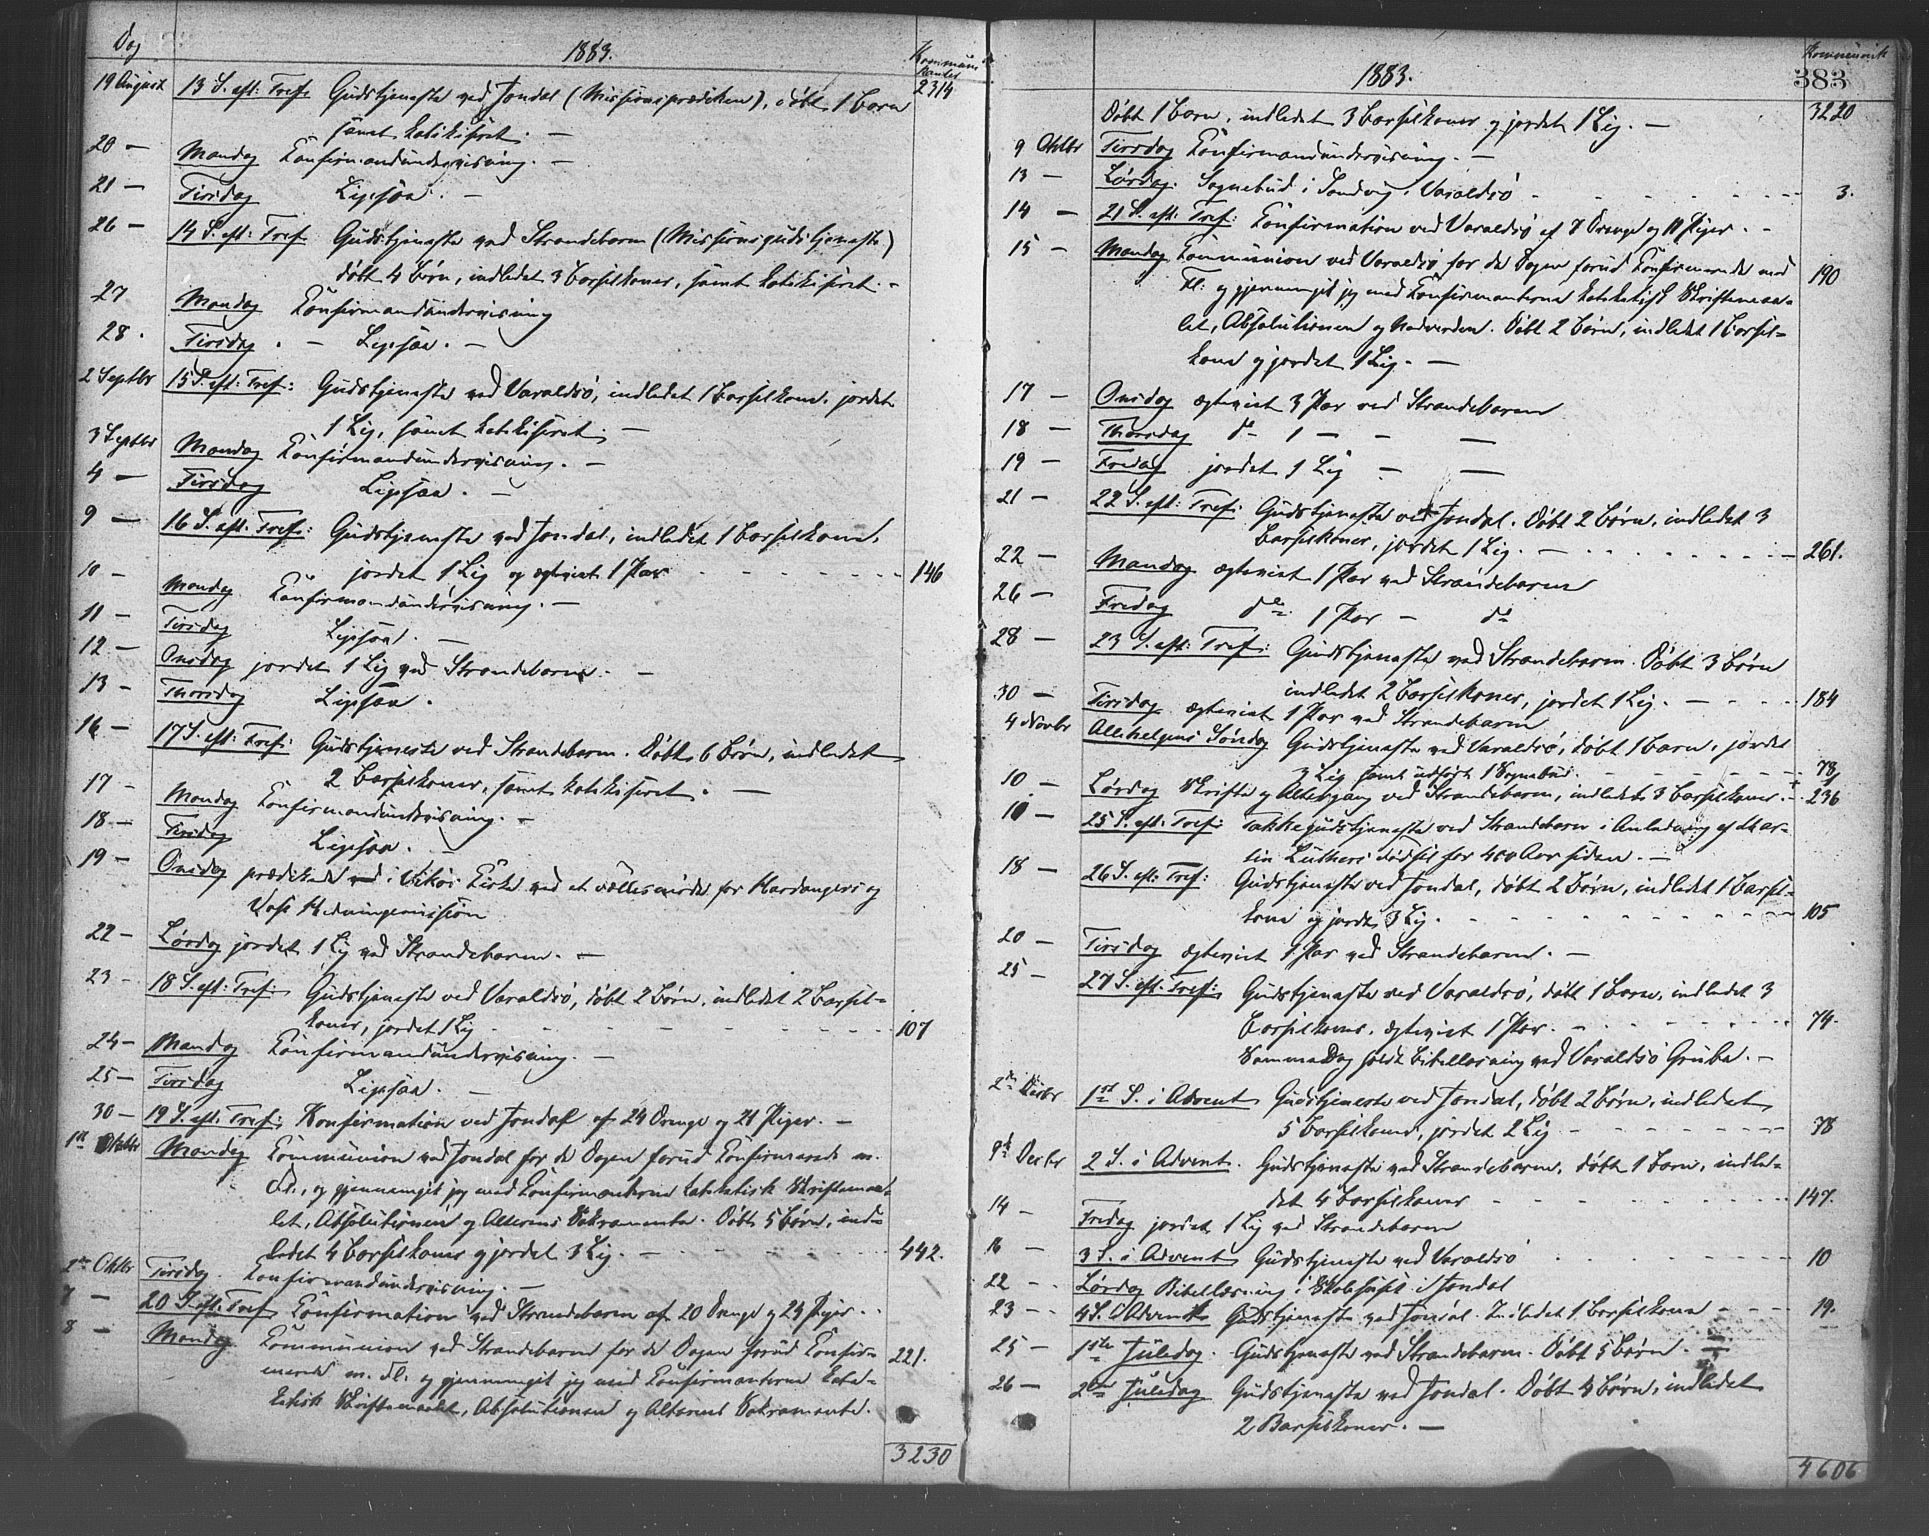 Dag
1883.
Kommunikanter
19 August 13 S. eft: Tref: Gudstjeneste ved Jondal (Missionsprædiken), døbt 1 Barn
2314
samt katekiseret. —
20 — Mandag Konfirmandundervisning. —
21 — Tirsdag Ligesaa. —
26 — 14 S. eft: Tref. Gudstjeneste ved Strandebarm (Missionsgudstjeneste)
døbt 4 Børn, indledet 3 Barselkoner, samt katekiseret. -
27 Mandag Konfirmandundervisning
28. Tirsdag. — Ligesaa. —
2 Septbr 15 S. eft: Tref: Gudstjeneste ved Varaldsö, indledet 1 Barselkone, jordet
1 Lig, samt katekiseret. —
3 Septbr Mandag Konfirmandundervisning. —
4 — Tirsdag Ligesaa. —
9 — 16 S. eft. Tref: Gudstjeneste ved Jondal, indledet 1 Barselkone,
jordet 1 Lig og ægteviet 1 Par - - - - - 146
10 — Mandag Konfirmandundervisning. —
11 — Tirsdag Ligesaa. —
12 — Onsdag jordet 1 Lig ved Strandebarm. —
13 — Thorsdag Ligesaa.
16 — 17 S. eft: Tref: Gudstjeneste ved Strandebarm. Døbt 6 Børn, indledet
2 Barselkoner, samt katekiseret. —
17 — Mandag Konfirmandundervisning. —
18 — Tirsdag Ligesaa. —
19 — Onsdag prædikede ved i Vikör Kirke ved et fællesmøde for Hardangers og
Vos's Hedningemission
22 — Lørdag jordet 1 Lig ved Strandebarm. —
23 - 18 S. eft: Tref: Gudstjeneste ved Varaldsö, døbt 2 Børn, indledet 2 Barsel-
koner, jordet 1 Lig - - - - - 107
24 — Mandag Konfirmandundervisning. —
25 — Tirsdag Ligesaa. —
30 — 19 S. eft. Tref: Konfirmation ved Jondal af 24 Drenge og 21 Piger. —
1st Oktbr Mandag Kommunion ved Jondal for de Dagen forud Konfirmerede m.
Fl., og gjennemgik jeg med Konfirmanterne kateketisk Skriftemaa-
let, Absolutionen og Alterens Sakramente. Døbt 5 Børn, ind-
ledet 4 Barselkoner og jordet 3 Lig. — - - - 442.
2den Oktbr Tirsdag. Konfirmandundervisning. —
7 — 20 S. eft. Tref Konfirmation ved Strandebarm af 20 Drenge og 24 Piger. .
8 — Mandag Kommunion ved Strandebarm for de Dagen forud Konfir-
221.
merede m. Fl. og gjennemgik jeg med Konfirmanterne kate-
ketisk Skriftemaalet, Absolutionen og Alterens Sakramente.
3230
1883.
Kommunik
383
Døbt 1 Barn, indledet 3 Barselkoner og jordet 1 Lig. —
3220
9 Oktbr Tirsdag Konfirmandundervisning. —
13 — Lørdag. Sognebud i Sandvig i Varaldsö - - - - - 3.
14 — 21 S. eft: Tref: Konfirmation ved Varaldsö af 7 Drenge og 11 Piger. -
15 — Mandag Kommunion ved Varaldsö for de Dagen forud Konfirmerede med
190
Fl: og gjennemgik jeg med Konfirmanterne kateketisk Skriftemaa-
let, Absolutionen og Nadverden. Døbt 2 Børn, indledet 1 Barsel-
kone og jordet 1 Lig. —
17 — Onsdag ægteviet 3 Par ved Strandebarm
18 — Thorsdag do 1 — — —
19 — Fredag jordet 1 Lig — —
21 — 22 S. eft: Tref: Gudstjeneste ved Jondal. Døbt 2 Børn, indledet 3
Barselkoner, jordet 1 Lig. — - - - - - 261.
22 — Mandag ægteviet 1 Par ved Strandebarm
26 — Fredag do 1 Par — do
28 — 23 S. eft: Tref: Gudstjeneste ved Strandebarm. Døbt 3 Børn
indledet 2 Barselkoner, jordet 1 Lig. — - - - 184
30 — Tirsdag ægteviet 1 Par ved Strandebarm
4 Novbr Allehelgens Søndag Gudstjeneste ved Varaldsö, døbt 1 Barn, jordet
3 Lig samt udført 1 Sognebud. - - - - 78
10 — Lørdag Skrifte og Altergang ved Strandebarm, indledet 3 Barselkoner. - 236
10 — 25 S. eft: Tref: Takkegudstjeneste ved Strandebarm i Anledning af Mar-
tin Luthers Fødsel for 400 Aar siden. —
18 — 26 S. eft: Tref: Gudstjeneste ved Jondal, døbt 2 Børn, indledet 1 Barsel-
kone og jordet 3 Lig. - - - - - 105
20 — Tirsdag ægteviet 1 Par ved Strandebarm. —
25 — 27 S. eft: Tref: Gudstjeneste ved Varaldsö, døbt 1 Barn, indledet 3
Barselkoner, ægteviet 1 Par. - - - - - 74.
Samme Dag holdt Bibellæsning ved Varaldsö Grube. —
2den Decbr 1ste S. i Advent Gudstjeneste ved Jondal, døbt 2 Børn, indledet
5 Barselkoner, jordet 2 Lig - - - - - 78
9de Decbr 2 S. i Advent. Gudstjeneste ved Strandebarm, døbt 1 Barn, indle-
det 4 Barselkoner - - - - - 147.
14 — Fredag jordet 1 Lig ved Strandebarm
16 — 3 S. i Advent Gudstjeneste ved Varaldsö - - - - - 10
22 — Lørdag Bibellæsning i Skolehuset i Jondal
23 — 4 S. i Advent Gudstjeneste ved Jondal. Indledet 1 Barselkone - - - 19.
25 — 1ste Juledag. Gudstjeneste ved Strandebarm. Døbt 5 Børn. —
26 — 2den Juledag Gudstjeneste ved Jondal. Døbt 4 Børn, indledet
2 Barselkoner. —
4606